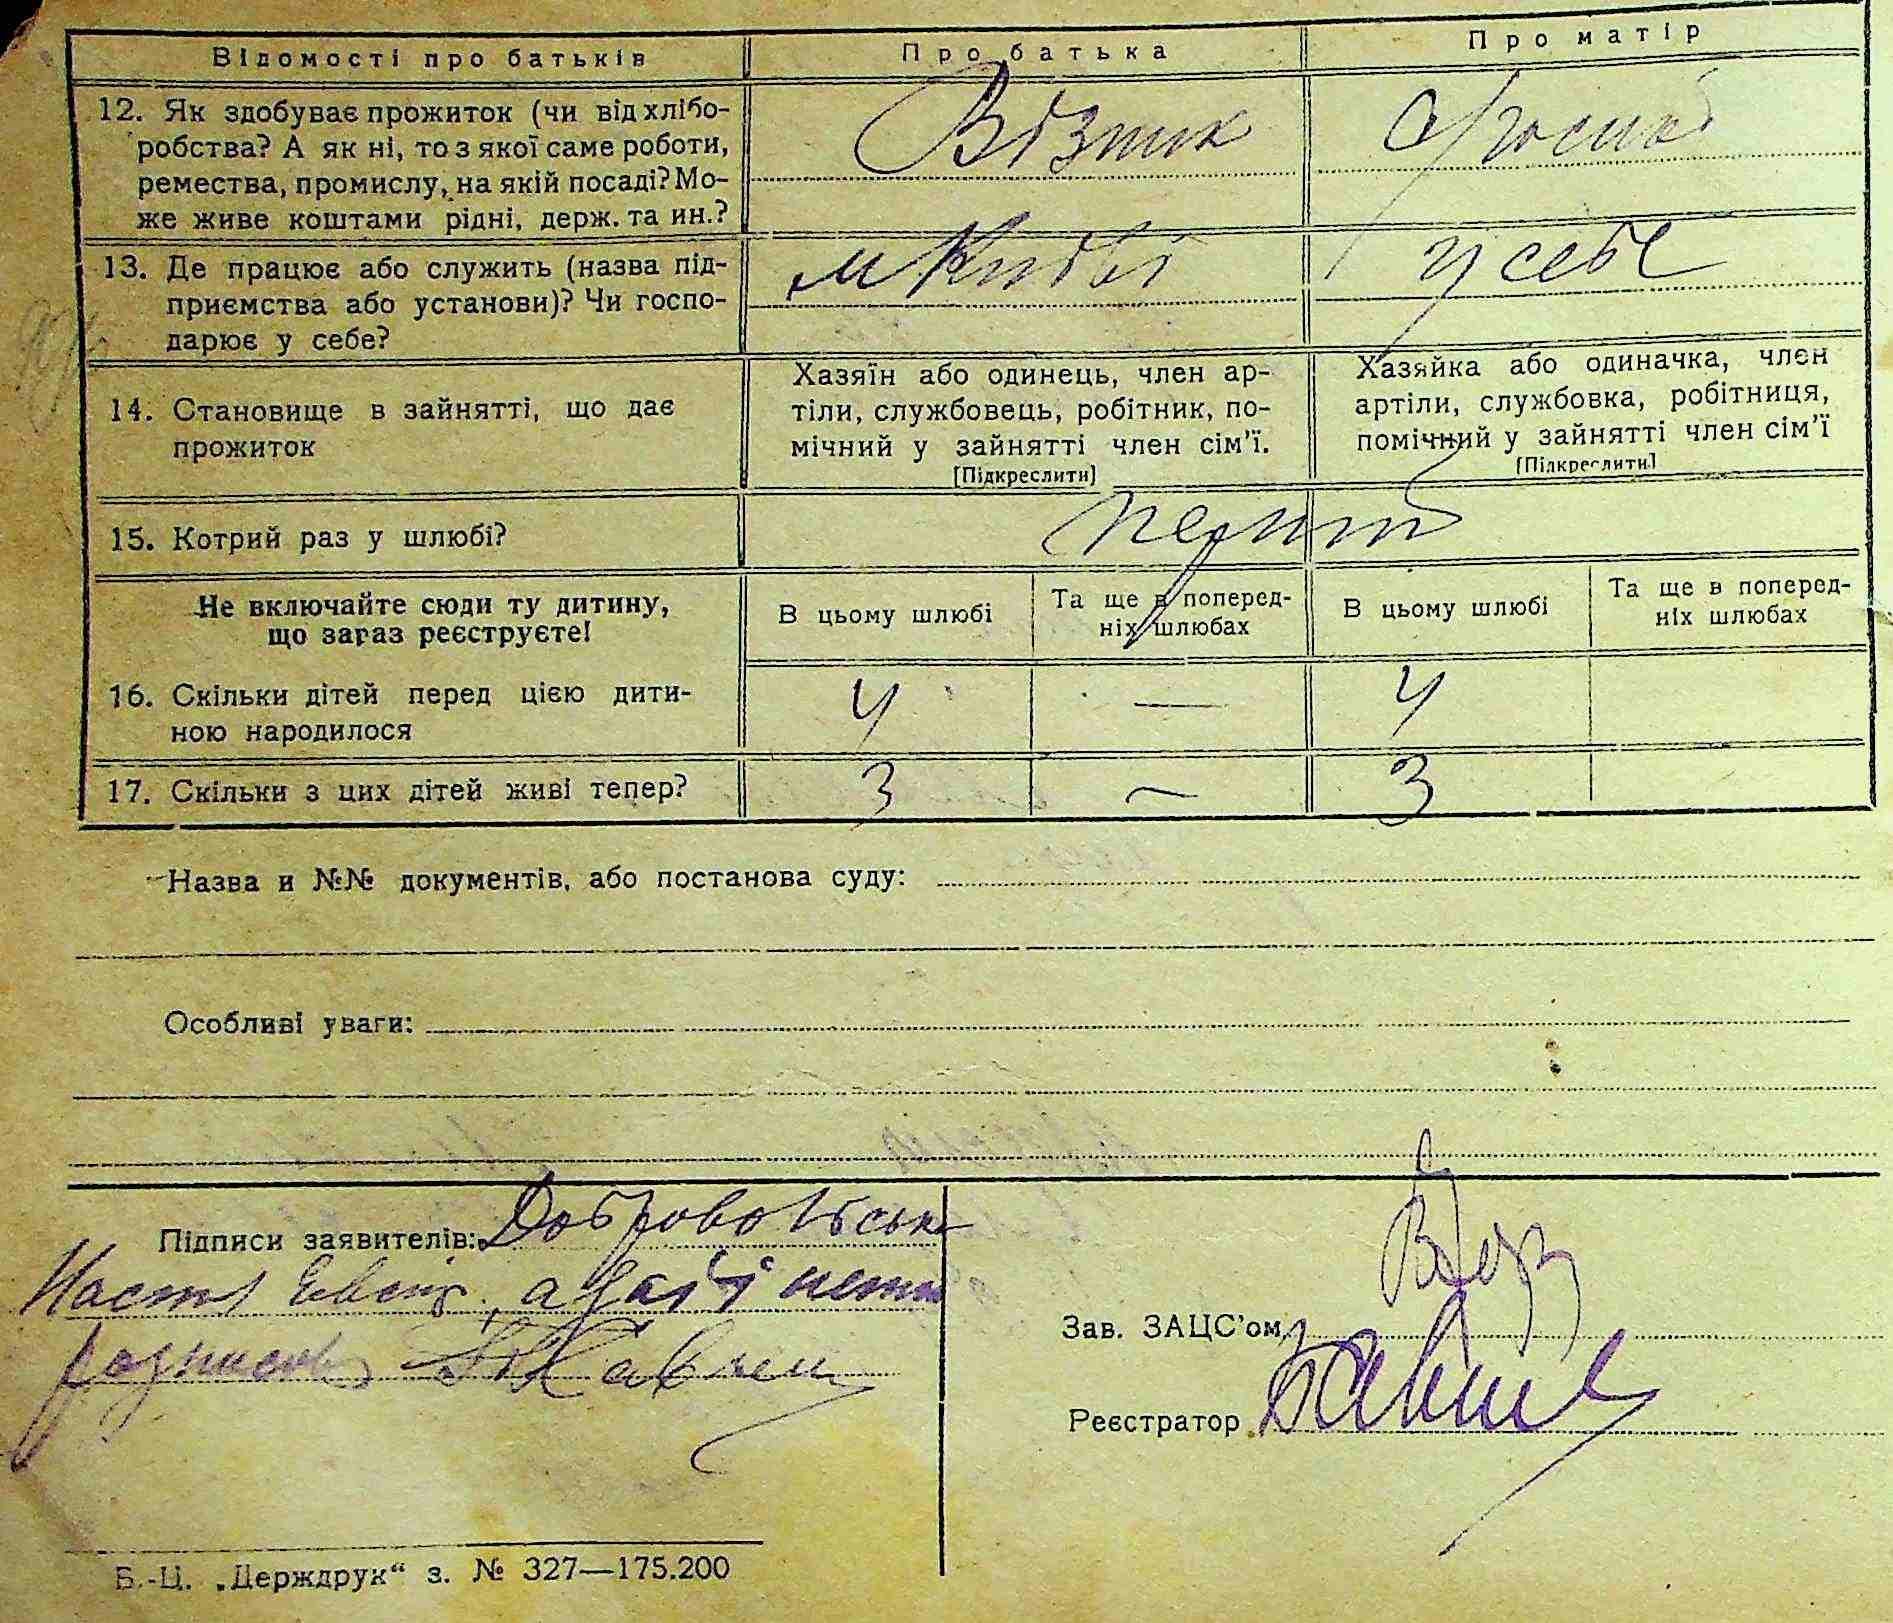 Відомості про батьків
Про батька
Про матір
12. Як здобуває прожиток (чи від хлібо-
робства? А як ні, то з якої саме роботи,
ремества, промислу, на якій посаді? Мо-
же живе коштами рідні, держ. та ин.?
Візник
13. Де працює або служить (назва під-
приємства або установи)? Чи госпо-
дарює у себе?
м Київі
у себе
14. Становище в зайнятті, що дає
прожиток
Хазяїн або одинець, член ар-
тіли, службовець, робітник, по-
мічний у зайнятті член сім'ї.
[Підкреслити]
Хазяйка або одиначка, член
артіли, службовка, робітниця,
помічний у зайнятті член сім'ї
[Підкреслити]
15. Котрий раз у шлюбі?
Не включайте сюди ту дитину,
що зараз реєструєте!
В цьому шлюбі
Та ще в поперед-
ніх шлюбах
В цьому шлюбі
Та ще в поперед-
ніх шлюбах
16. Скільки дітей перед цією дити-
ною народилося
4
—
4
17. Скільки з цих дітей живі тепер?
3
—
3
Назва и №№ документів, або постанова суду:
Особливі уваги:
Підписи заявителів:
Зав. ЗАЦС'ом
Реєстратор
Б.-Ц. „Держдрук“ з. № 327—175.200